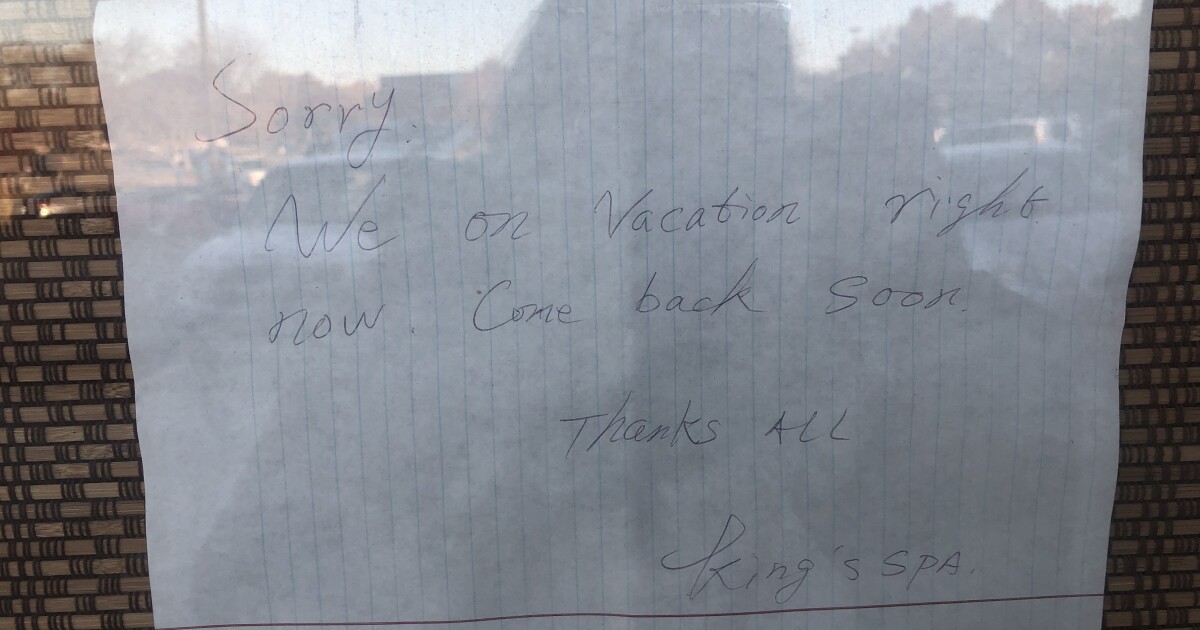 Sorry.
We on Vacation right
now. Come back soon.
Thanks ALL
King's SPA.